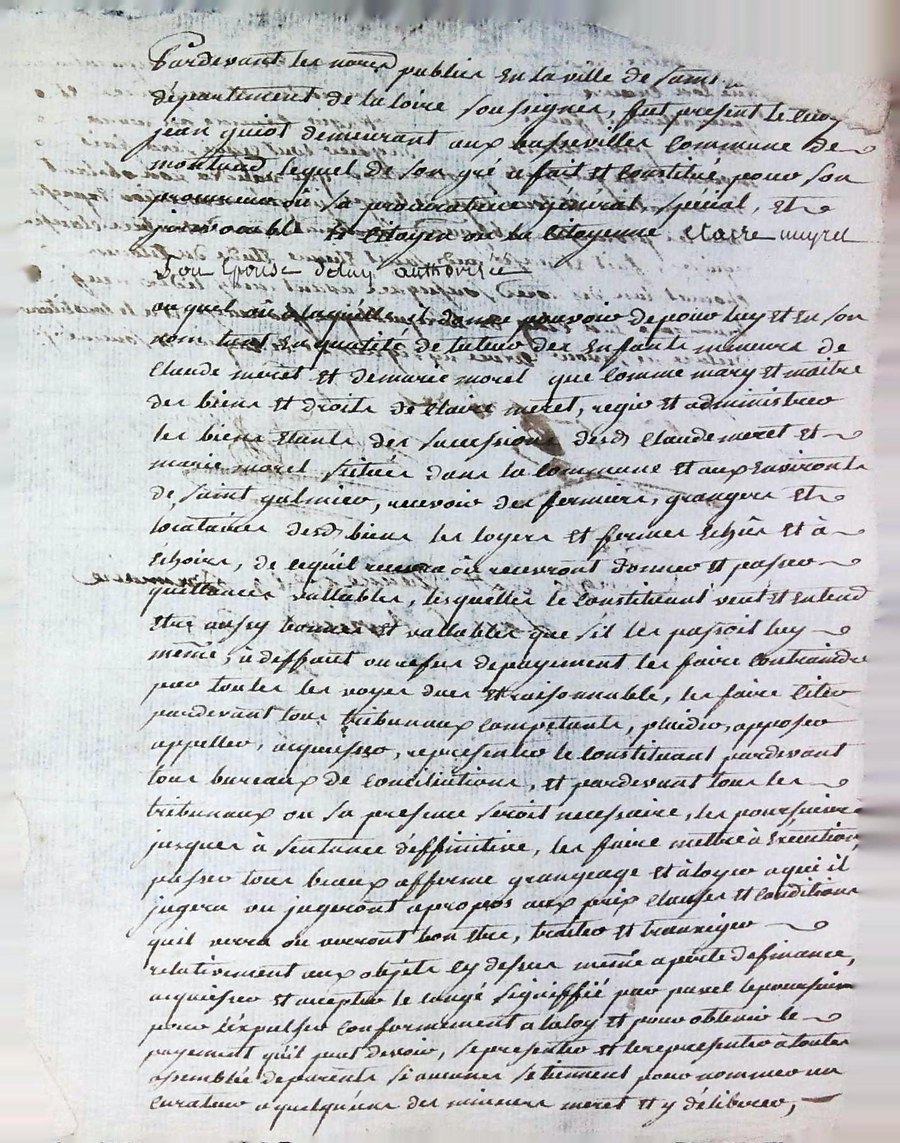 Pardevant les no.res publics en la ville de saint
département de la loire soussignes, fut present le citoy
jean guiot demeurant aux basseville commune de
montaud lequel de son gré a fait et constitué pour son
procureur ou sa procuratrice général special, et
irrevocable le citoyen ou la citoyenne claire meyret
son epouse deluy authorisée
auquel ou a laquelle il donne pouvoir de pour luy et en son
nom tant en qualité de tuteur des enfants mineurs de
Claude meret et de marie morel que comme mary et maitre
des biens et droits de claire meret, regir et administrer
les biens etants des successions desd. claude meret et
marie morel situés dans la commune et aux environts
de saint galmier, recevoir des fermiers, grangers et
locataires desd. biens les loyers et fermes echûs et à
echoirs, de ce quil recevra où recevront donner et passer
quittances vallables, lesquelles le constituant veut et entend
etre aussy bonnes et vallables que sil les passoit luy
même, à deffaut ou refus de payement les faire contraindre
par toutes les voyes dues et raisonnable, les faire citer
pardevant tous tribunaux competants, plaider, opposer
appeller, acquiesser, representer le constituant pardevant
tous bureaux de conciliations, et pardevant tous les
tribunaux ou sa presence seroit necessaire, les poursuivre
jusques à sentance déffinitive, les faire mettre à execution,
passer tous beaux afferme grangeage et à loyer a qui il
jugera ou jugeront apropos aux prix clauses et conditions
quil verra ou verront bon etre, traiter et transiger
relativement aux objets cy dessus même a perte de finance,
acquiesser et accepter le congé signiffié par
pour l'expulser conformement à la loy et pour obtenir le
payement quil peut devoir, se presenter et le representer à toutes
assemblée de parents si aucunes se tiennent pour nommer un
curateur a quelqu'uns des mineurs meret et y déliberer,